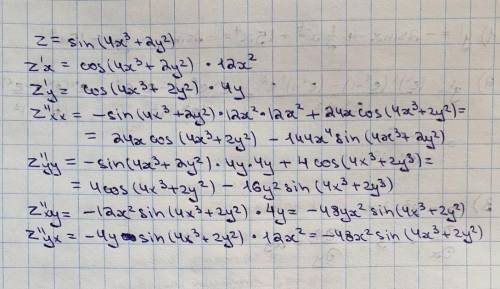 z = sin(4x³+2y²)
z'x = cos(4x³+2y²) · 12x²
z'y = cos(4x³+2y²) · 4y
z''xx = -sin(4x³+2y²)·12x²·12x² + 24x cos(4x³+2y²)=
= 24x cos(4x³+2y²) - 144x⁴ sin(4x³+2y²)
z''yy = -sin(4x³+2y²)·4y·4y + 4 cos(4x³+2y³)=
= 4cos(4x³+2y²) - 16y² sin(4x³+2y³)
z''xy = -12x² sin(4x³+2y²) · 4y = -48yx² sin(4x³+2y²)
z''yx = -4y sin(4x³+2y²) · 12x² = -48x² sin(4x³+2y²)